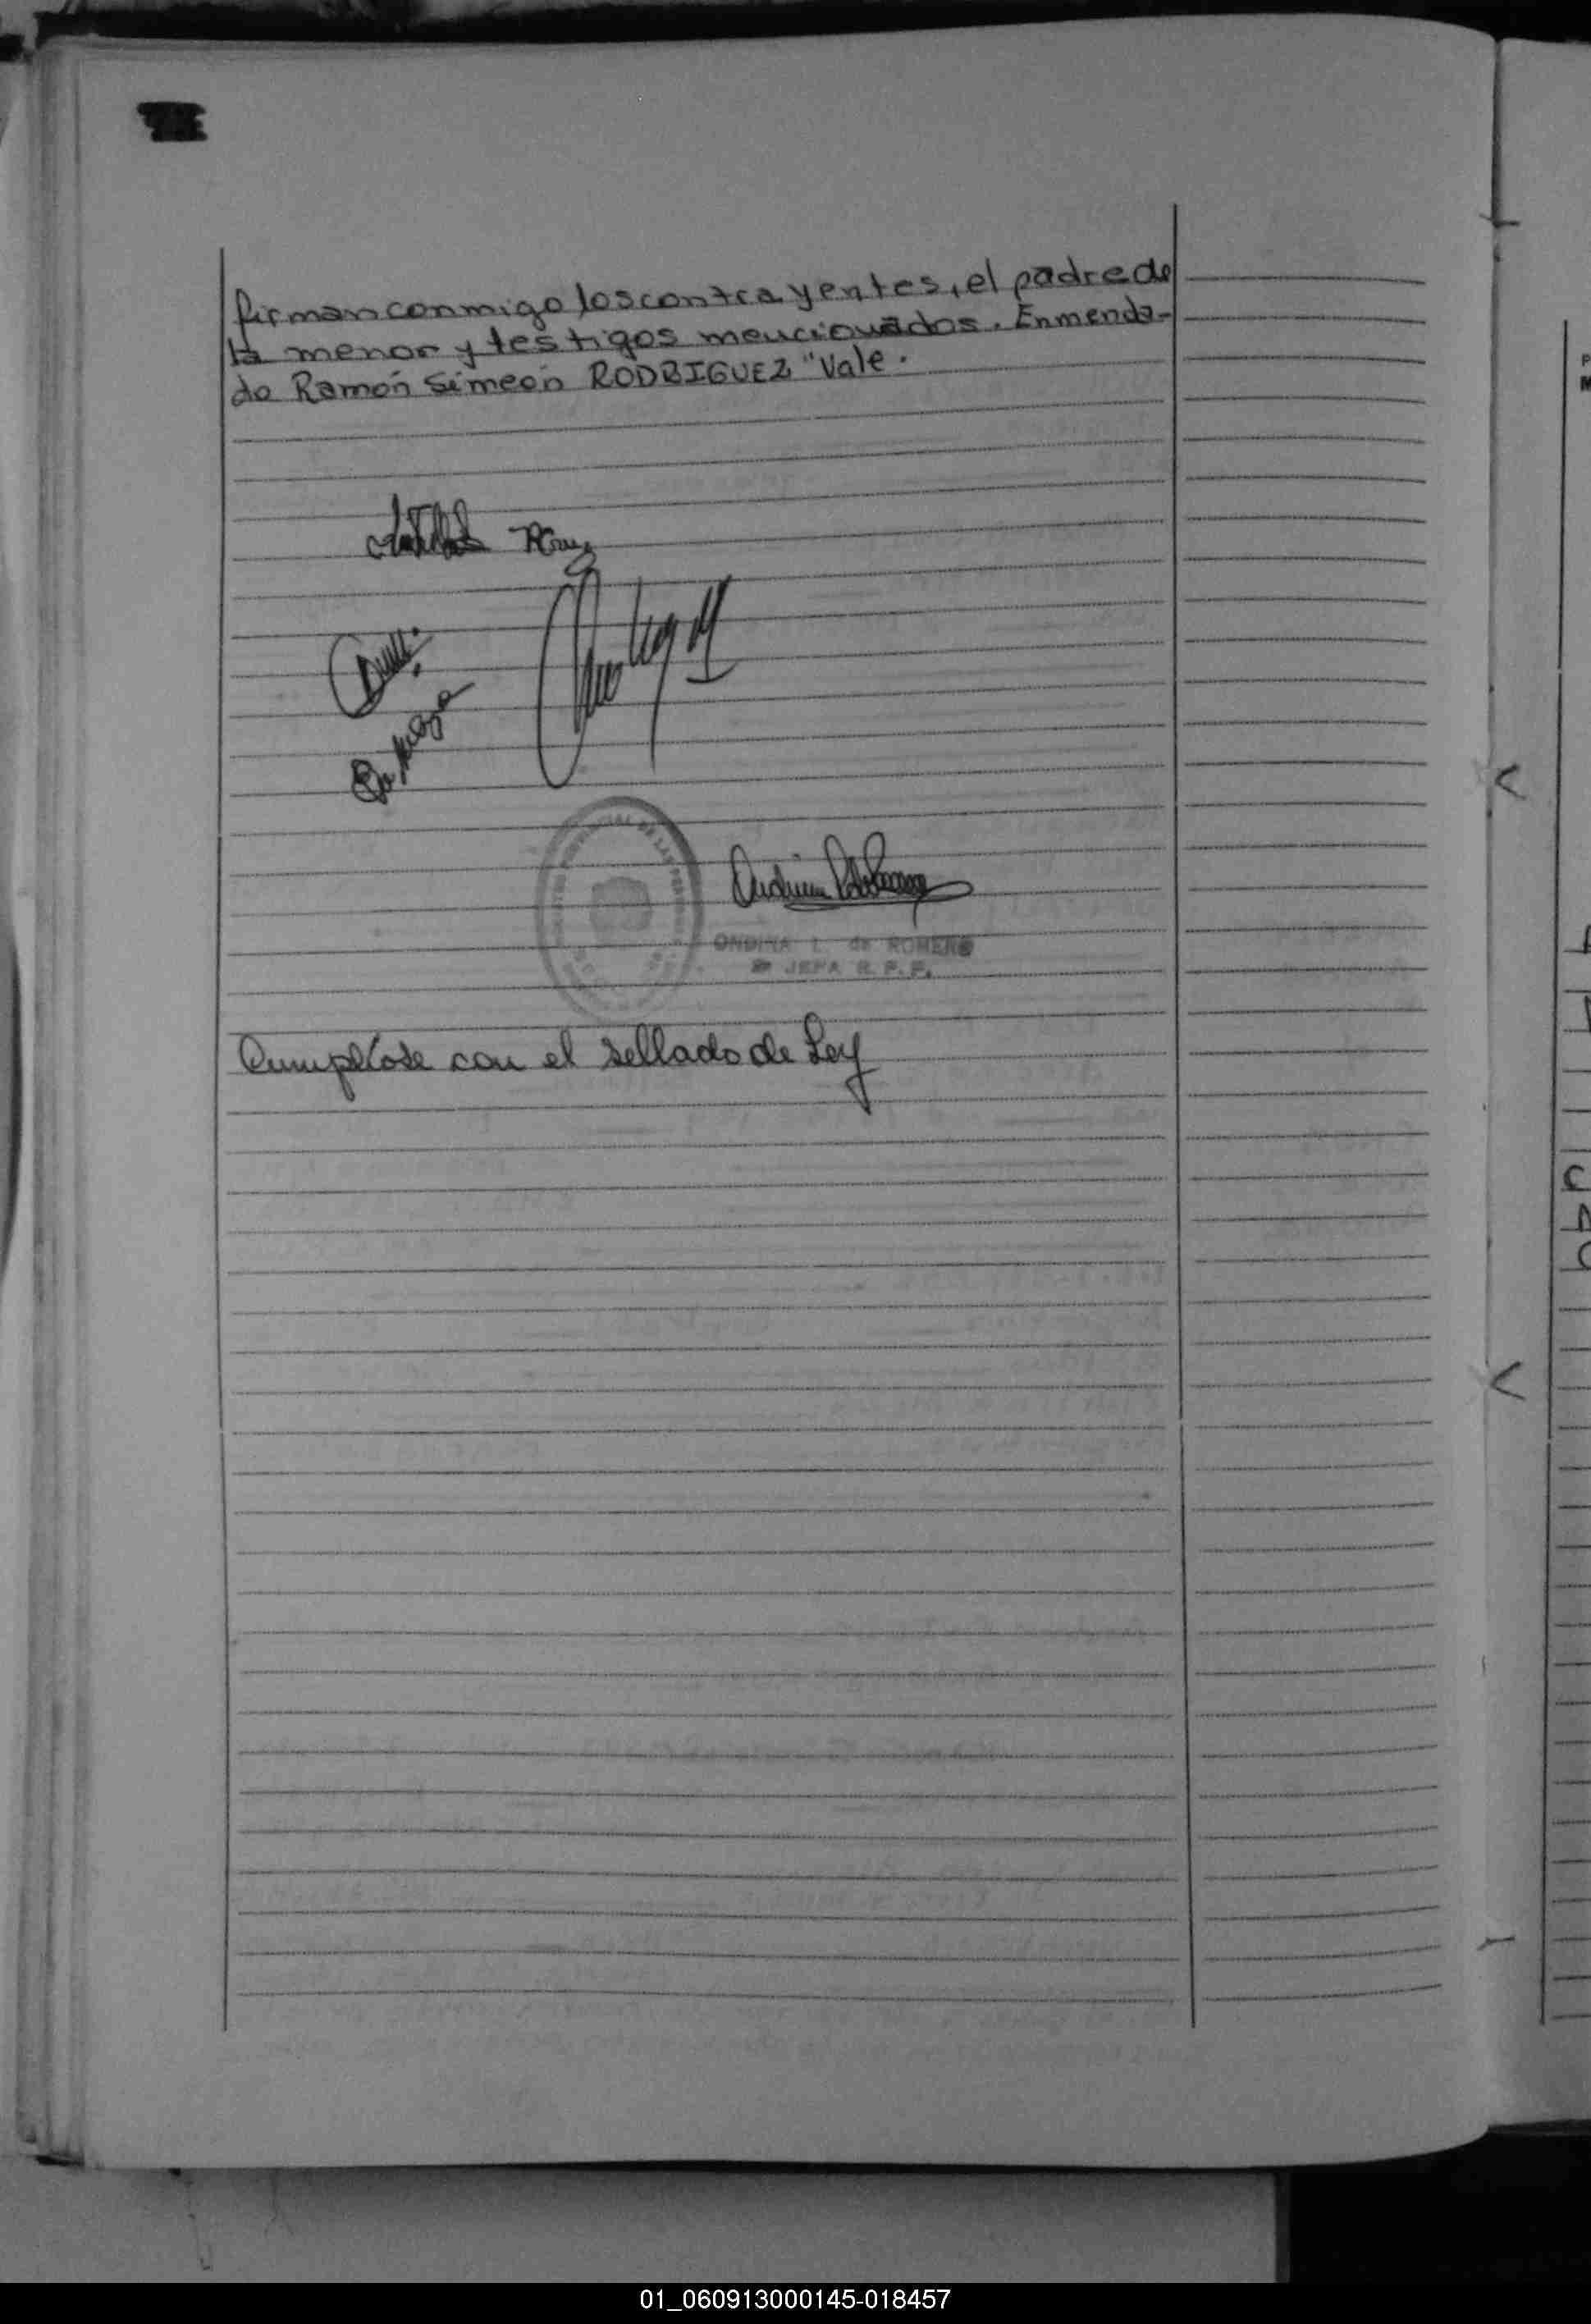 firman conmigo los contrayentes, el padre de
la menor y testigos mencionados. Enmenda-
do Ramón Simeón RODRIGUEZ "Vale.
ONDINA L. de ROMERO
JEFA R. P. P.
Cumplióse con el sellado de Ley
01_060913000145-018457